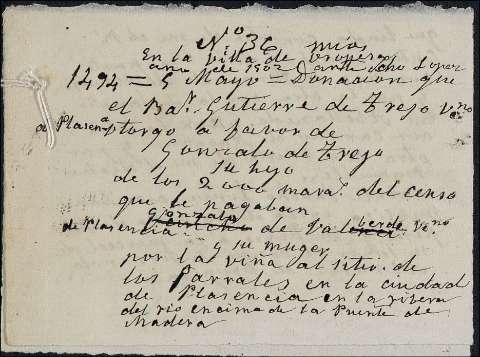 Nº 36
En la villa de Oropesa
año de 1502 ante Juº Lopez
1494 = 5 Mayo = Donacion que
el Baʳ. Gutierre de Trejo vᵉⁿᵒ
de Plasenᵃ otorgo á favor de
Gonzalo de Trejo
su hijo
de los 2000 maraˢ. del censo
que le pagaban
Gonzalo
de Plasencia de Valverde vᵉⁿᵒ
y su muger
por la viña al sitio de
los Parrales en la ciudad
de Plasencia en la rivera
del rio encima de la Puente de
Madera